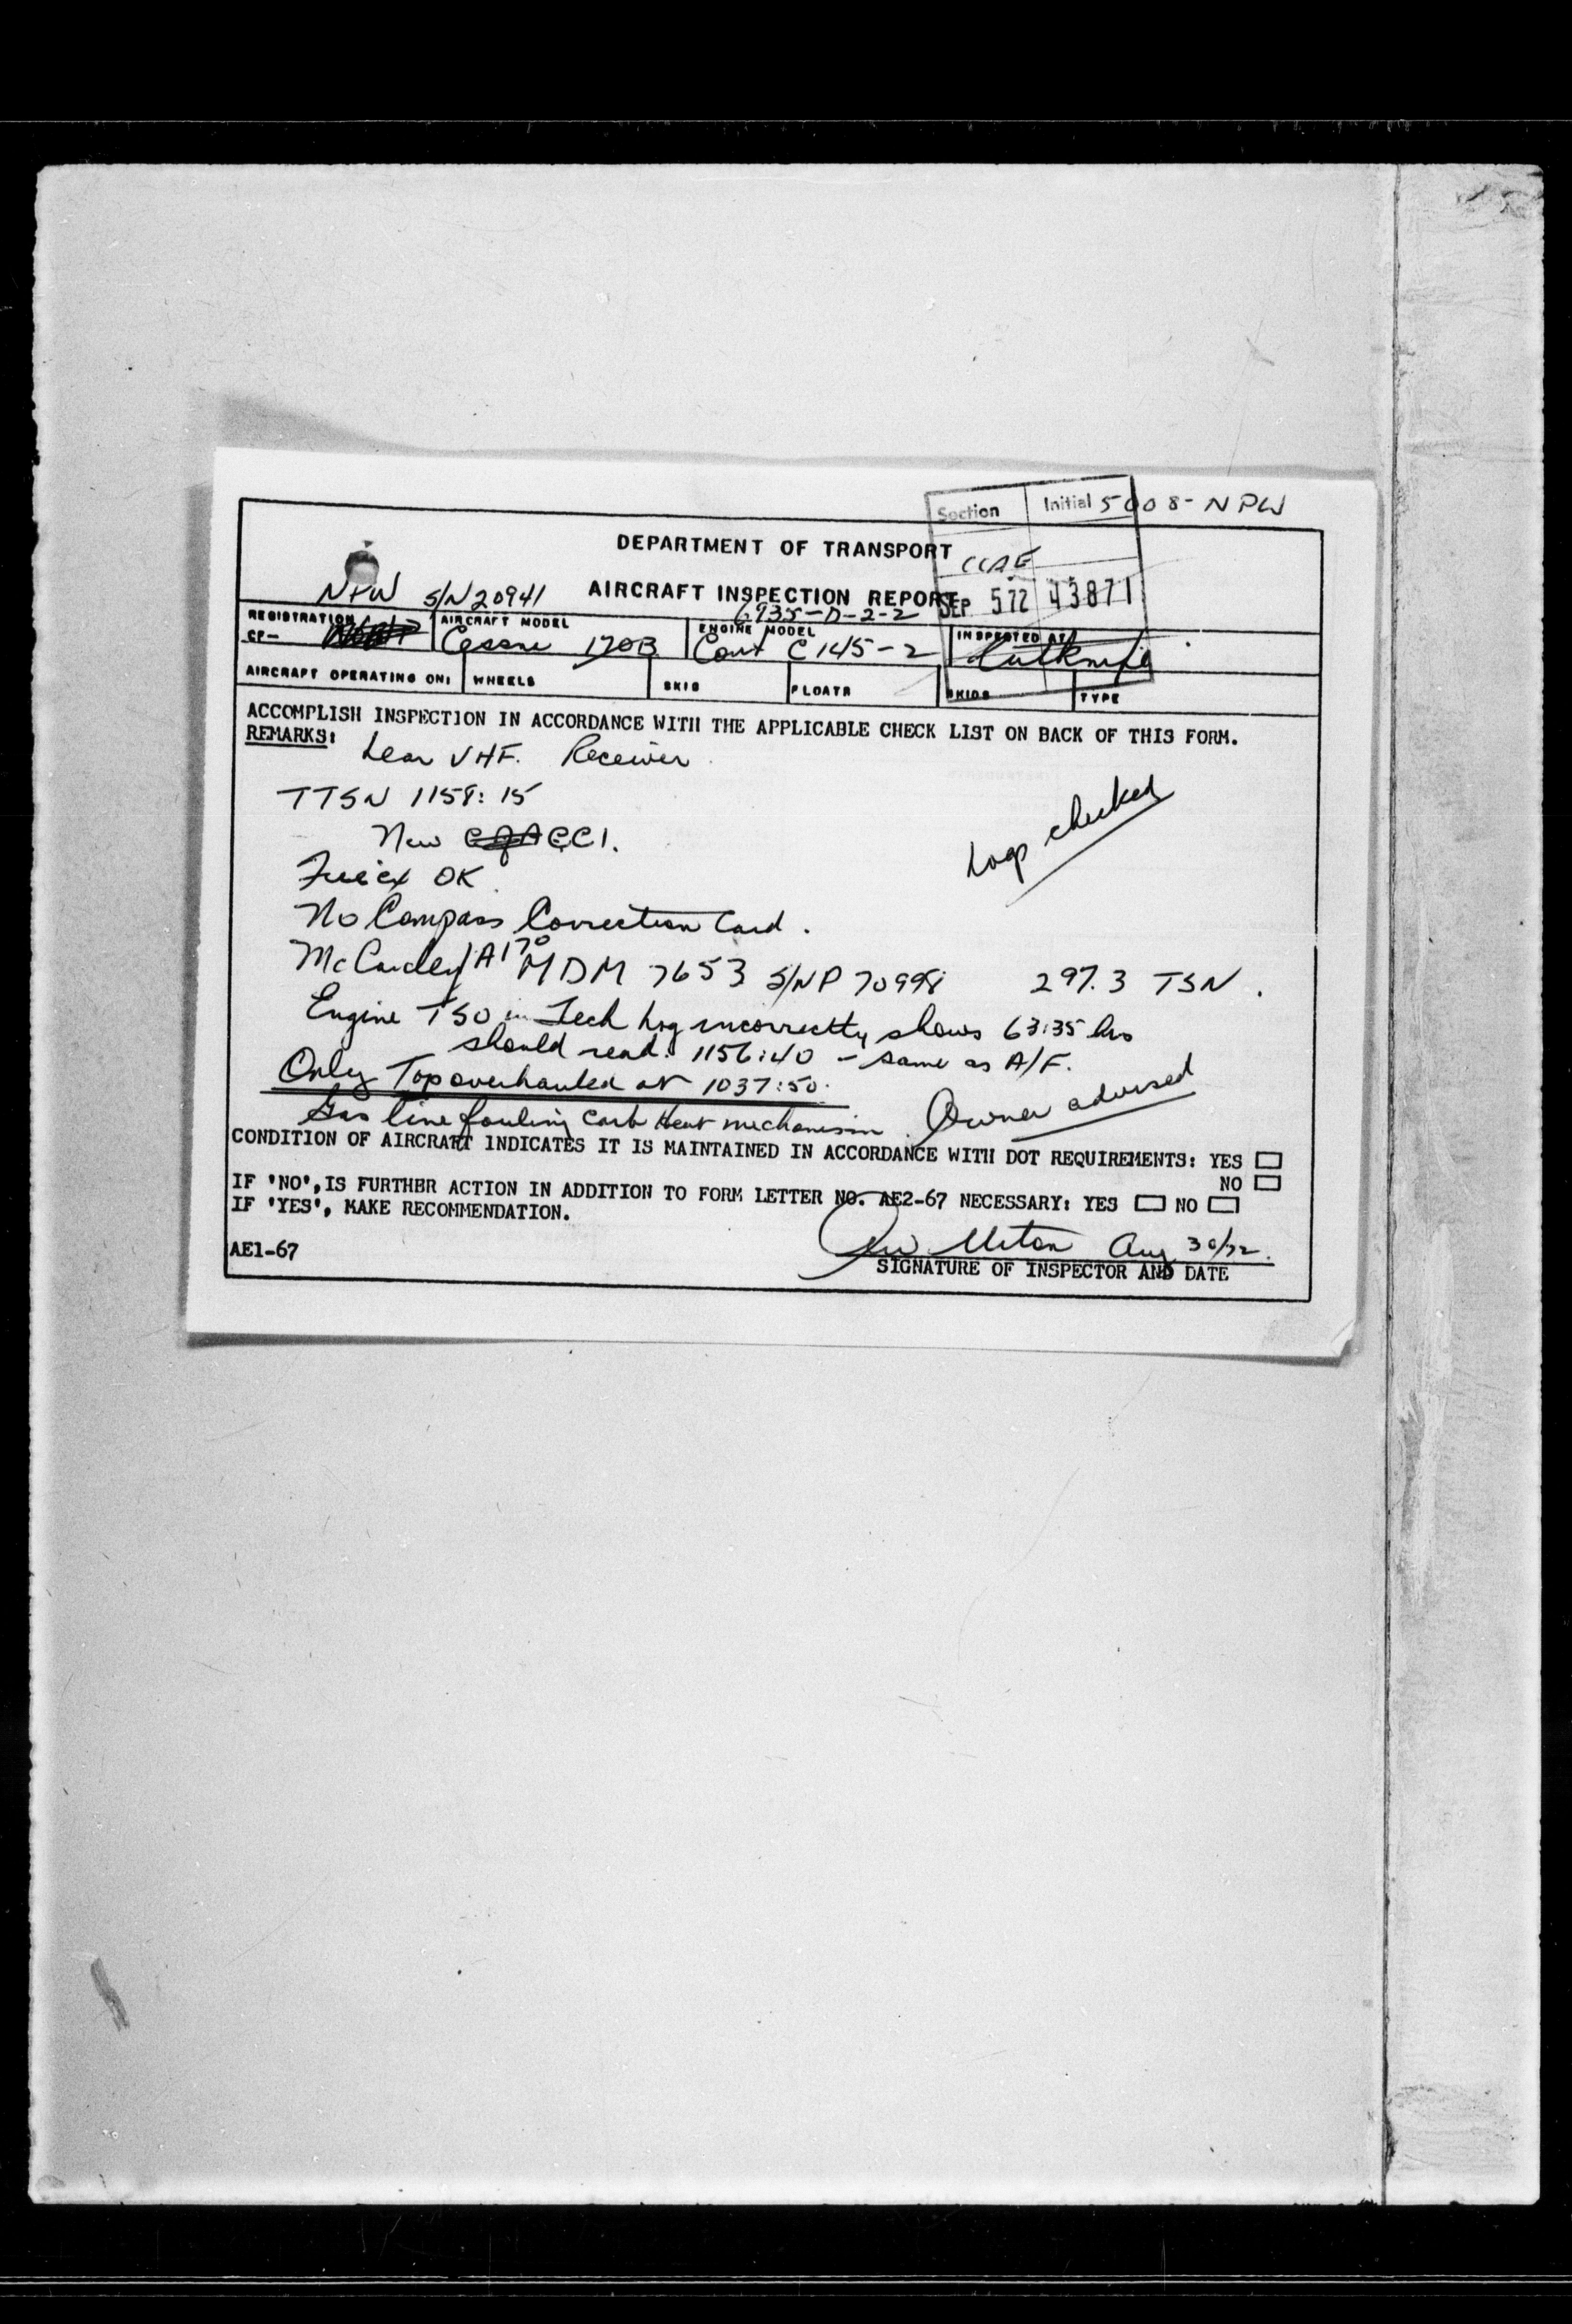 Section Initial 5008-NPW
DEPARTMENT OF TRANSPORT
CCAE
NPW S/N 20941 AIRCRAFT INSPECTION REPORT SEP 5 72 43871
6935-D-2-2
REGISTRATION AIRCRAFT MODEL ENGINE MODEL INSPECTED AT
CF- Cessna 170B Cont C145-2 Cutknife
AIRCRAFT OPERATING ON: WHEELS SKIS FLOATS SKIDS TYPE
ACCOMPLISH INSPECTION IN ACCORDANCE WITH THE APPLICABLE CHECK LIST ON BACK OF THIS FORM.
REMARKS: Lear VHF. Receiver
TTSN 1158:15
Log checked
New CCI.
OK
No Compass Correction Card.
McCauley 1A170 MDM 7653 S/N P 70998 297.3 TSN.
Engine TSO in Tech Log incorrectly shows 63:35 hrs
should read. 1156:40 - same as A/F.
Only Top overhauled at 1037:50.
Gas line fouling Carb Heat mechanism. Owner advised
CONDITION OF AIRCRAFT INDICATES IT IS MAINTAINED IN ACCORDANCE WITH DOT REQUIREMENTS: YES
NO
IF 'NO', IS FURTHBR ACTION IN ADDITION TO FORM LETTER NO. AE2-67 NECESSARY: YES NO
IF 'YES', MAKE RECOMMENDATION.
Aug 30/72.
AE1-67
SIGNATURE OF INSPECTOR AND DATE